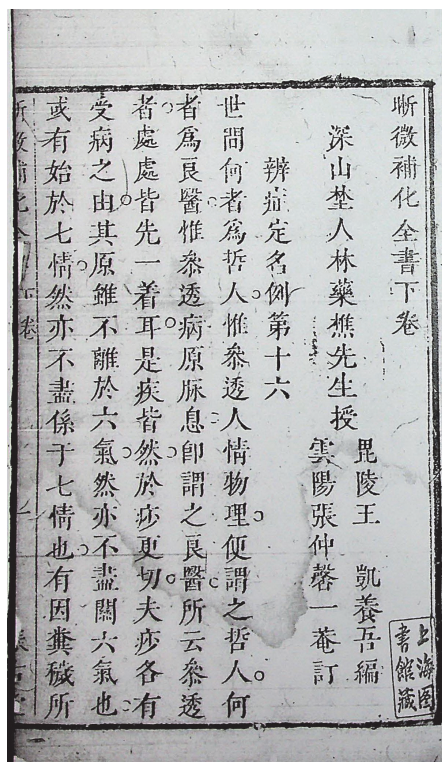 晰微補化全書下卷
深山埜人林藥樵先生授
毘陵王　凱養吾編
雲陽張仲馨一菴訂
辨症定名例第十六
世間何者爲哲人惟叅透人情物理便謂之哲人何
者爲良醫惟叅透病原脉息卽謂之良醫所云叅透
者處處皆先一着耳是疾皆然於痧更切夫痧各有
受病之由其原雖不離於六氣然亦不盡關六氣也
或有始於七情然亦不盡係于七情也有因糞穢所
晰微補化全
下卷
上海图
書館藏